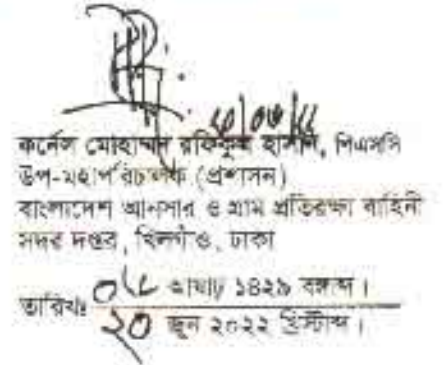 কর্নেল মোহাম্মদ রফিকুল হাসান, পিএসসি
উপ-মহাপরিচালক (প্রশাসন)
বাংলাদেশ আনসার ও গ্রাম প্রতিরক্ষা বাহিনী
সদর দপ্তর, খিলগাঁও, ঢাকা
তারিখঃ ০৬ আষাঢ় ১৪২৯ বঙ্গাব্দ।
২০ জুন ২০২২ খ্রিস্টাব্দ।